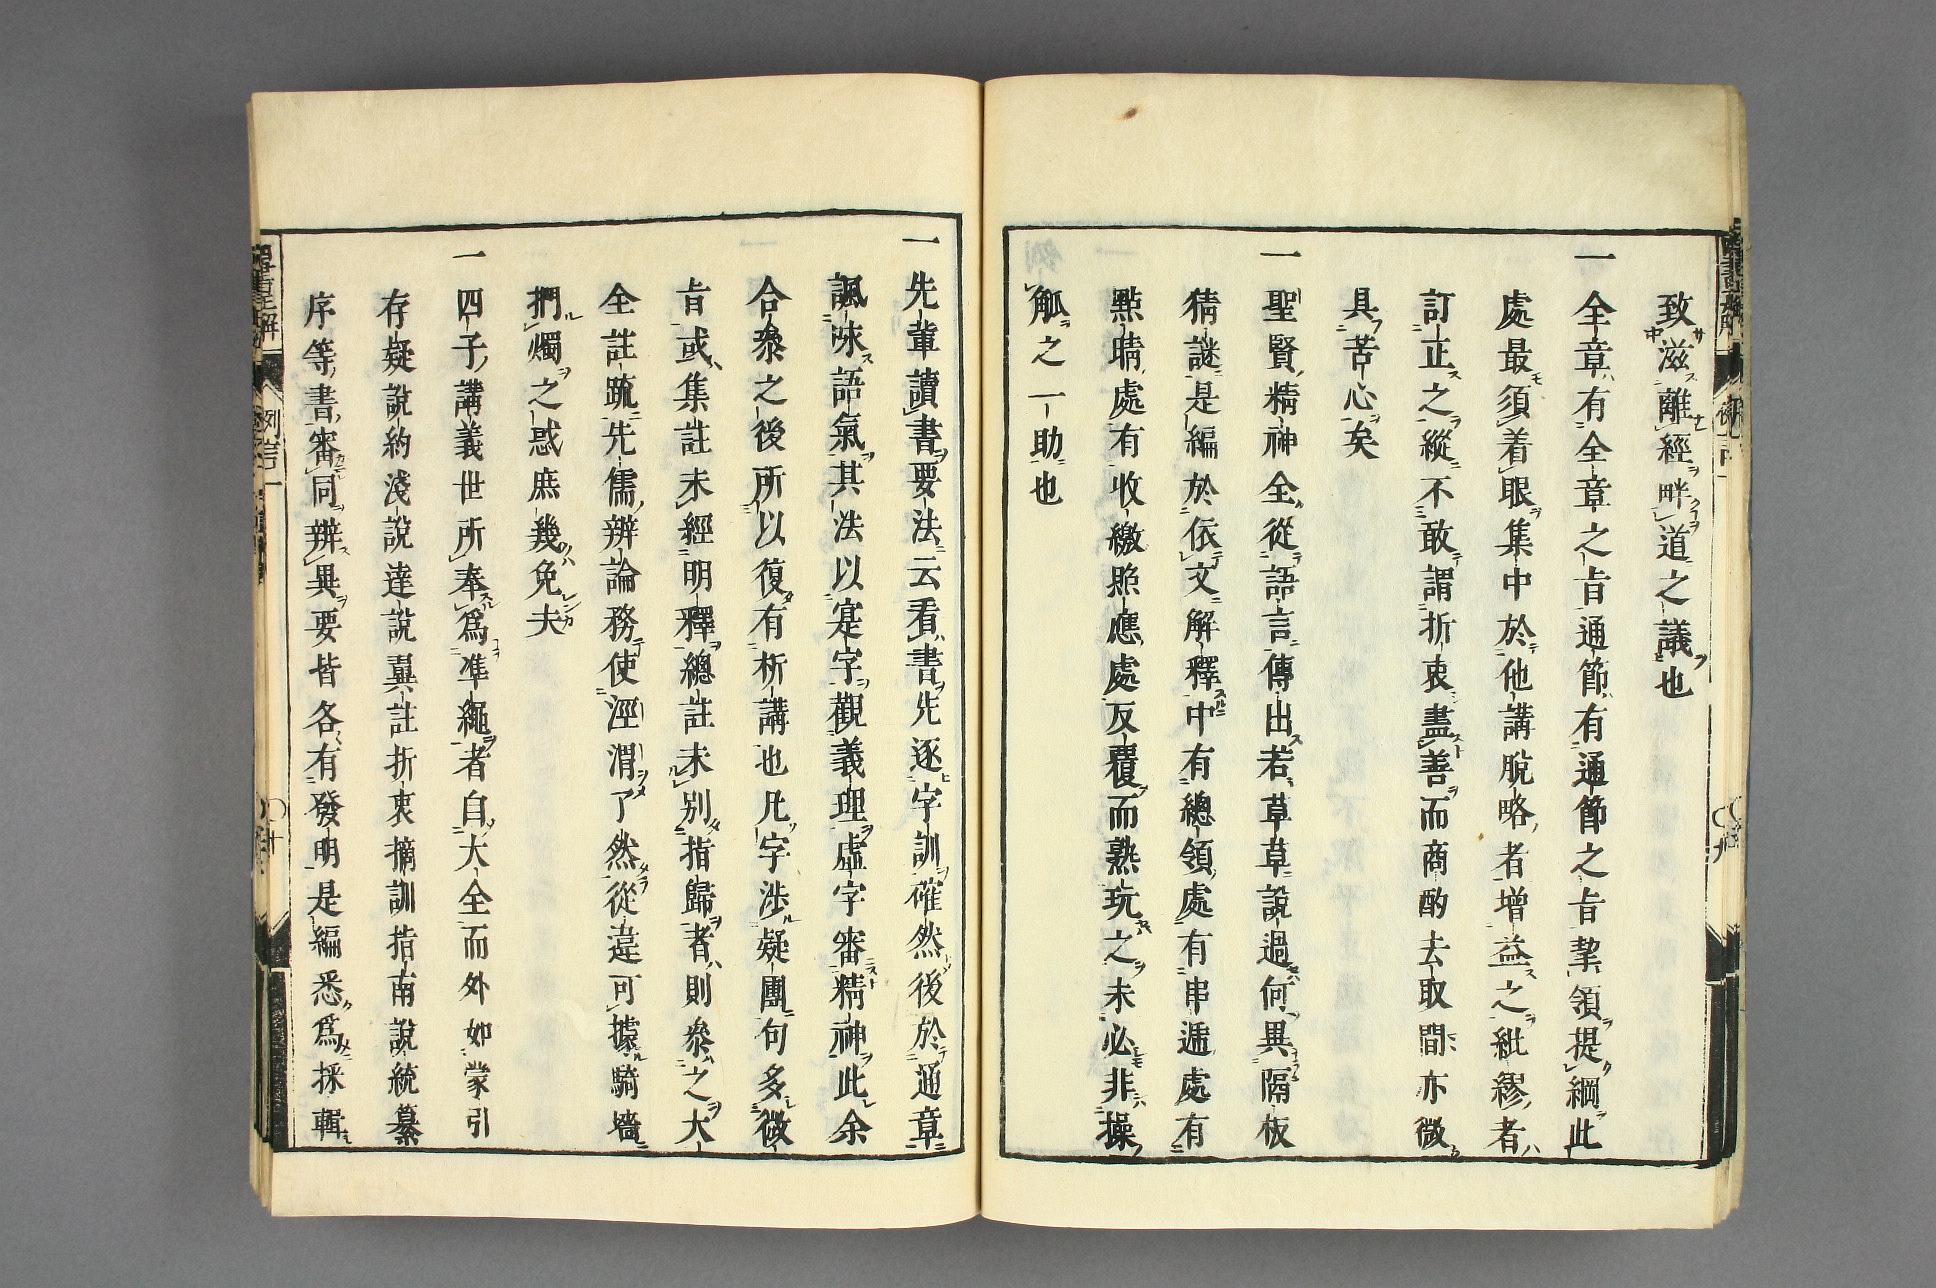 致滋離經畔道之議也
一全章有全章之旨通節有通節之旨挈領提綱此
處最須着眼集中於他講脫略者增益之紕繆者
訂正之縱不敢謂折衷盡善而商酌去取間亦微
具苦心矣
一聖賢精神全從語言傳出若草草說過何異隔板
猜謎是編於依文解釋中有總領處有串遞處有
點睛處有收繳照應處反覆而熟玩之未必非操
觚之一助也
一先輩讀書要法云看書先逐字訓確然後於通章
諷味語氣其法以寔字觀義理虛字審精神此余
合叅之後所以復有析講也凡字涉疑團句多微
旨或集註未經明釋總註未別指歸者則叅之大
全註疏先儒辨論務使涇渭了然從違可據騎墻
捫燭之惑庶幾免夫
一四子講義世所奉爲準繩者自大全而外如蒙引
存疑說約淺說達說翼註折衷摘訓指南說統纂
序等書審同辨異要皆各有發明是編悉爲採輯